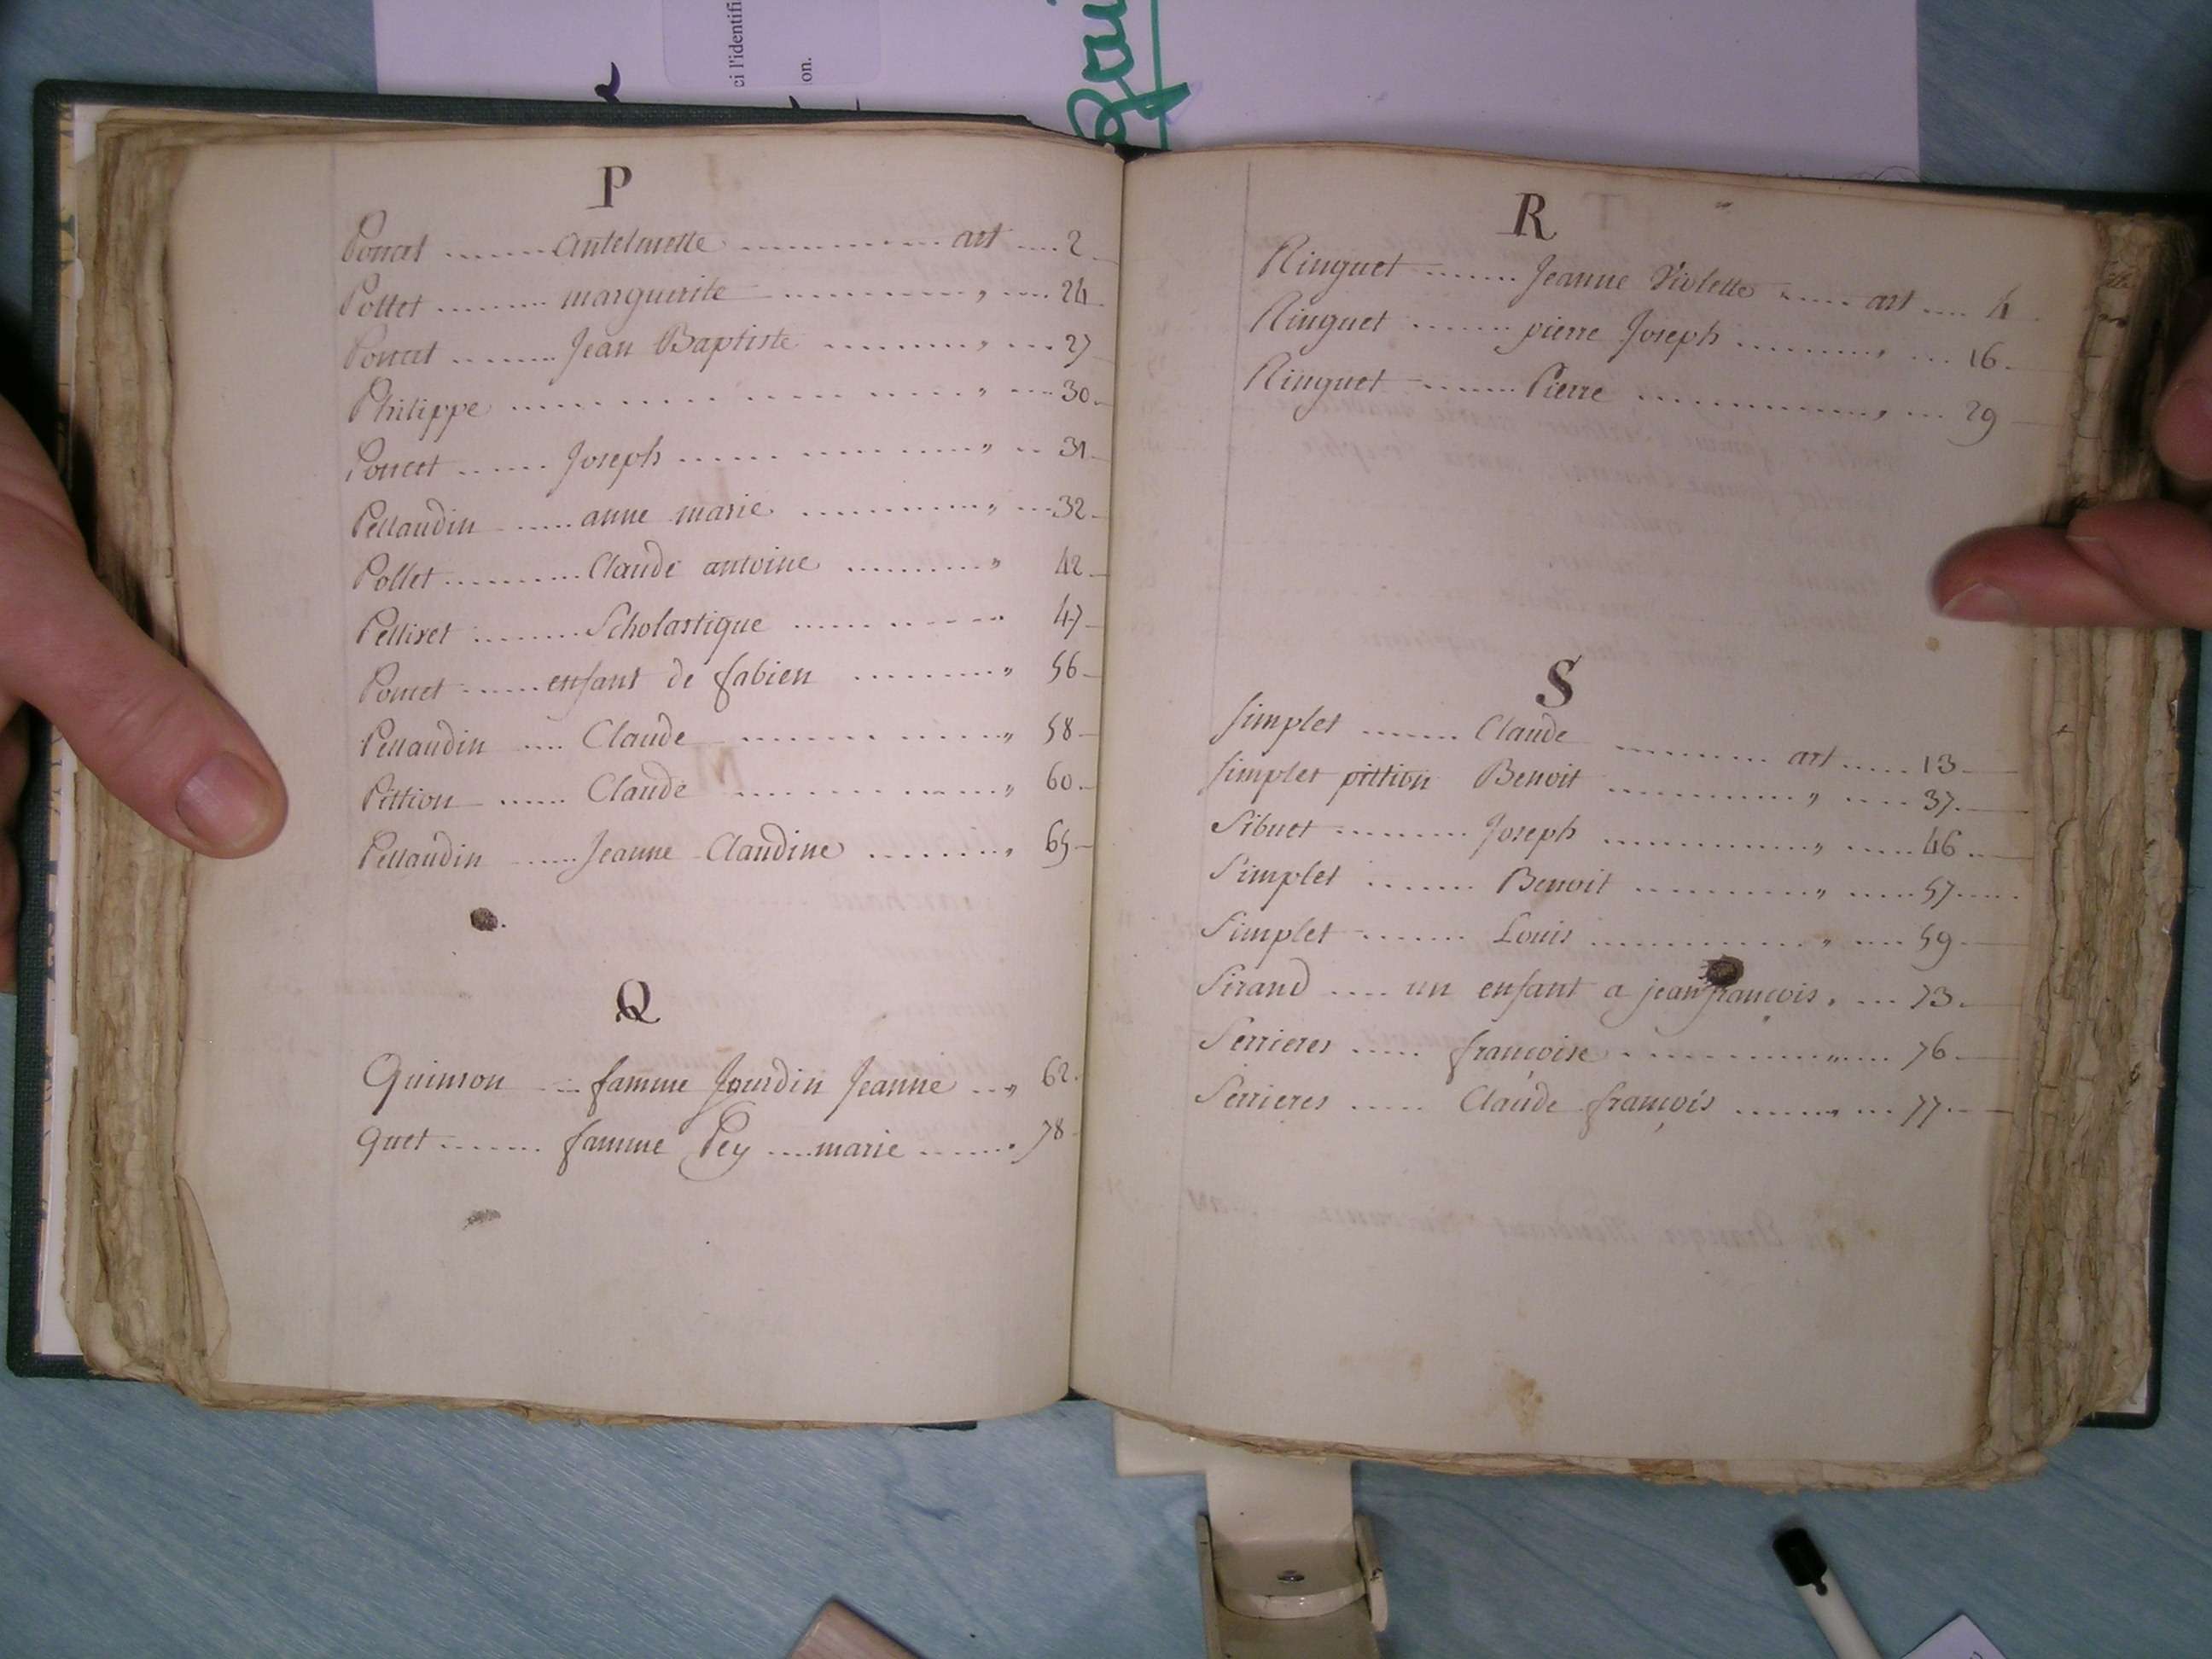 ci l'identifi
on.
P
Poncet ....... antelmette .............. art .... 2
Pottet ......... marguerite ............ " .... 24
Poncet ....... Jean Baptiste ......... " ... 27
Philippe ..................... " ... 30.
Poncet ...... Joseph ............ " .. 31
Pellaudin ...... anne marie ............ " ... 32
Pollet .......... Claude antoine .......... " 42
Pelliset ........ Scholastique ............ 47
Poncet ...... enfant de fabien .......... " 56
Pellaudin .... Claude ............ " 58
Pittion ...... Claude ............ " 60.
Pellaudin ...... Jeanne Claudine ........ " 65
Q
Quinson ... famme Jourdin Jeanne ... " 62.
Quet ....... famme Pey .... marie ....... " 78
R
Ringuet ....... Jeanne Violette ..... art .... 4
Ringuet ....... pierre Joseph ......... " ... 16.
Ringuet ....... Pierre ............. " ... 29
S
Simplet ....... Claude .......... art ..... 13
Simplet pittion Benoit ............ " .... 37.
Sibuet ......... Joseph ............. " .... 46 ..
Simplet ....... Benoit ............ " .... 57 ....
Simplet ....... Louis ............. " .... 59
Sirand .... un enfant a jean françois. ... 73.
Serrieres ..... françoise ............ " .... 76
Serrieres ..... Claude françois ....... " ... 77.